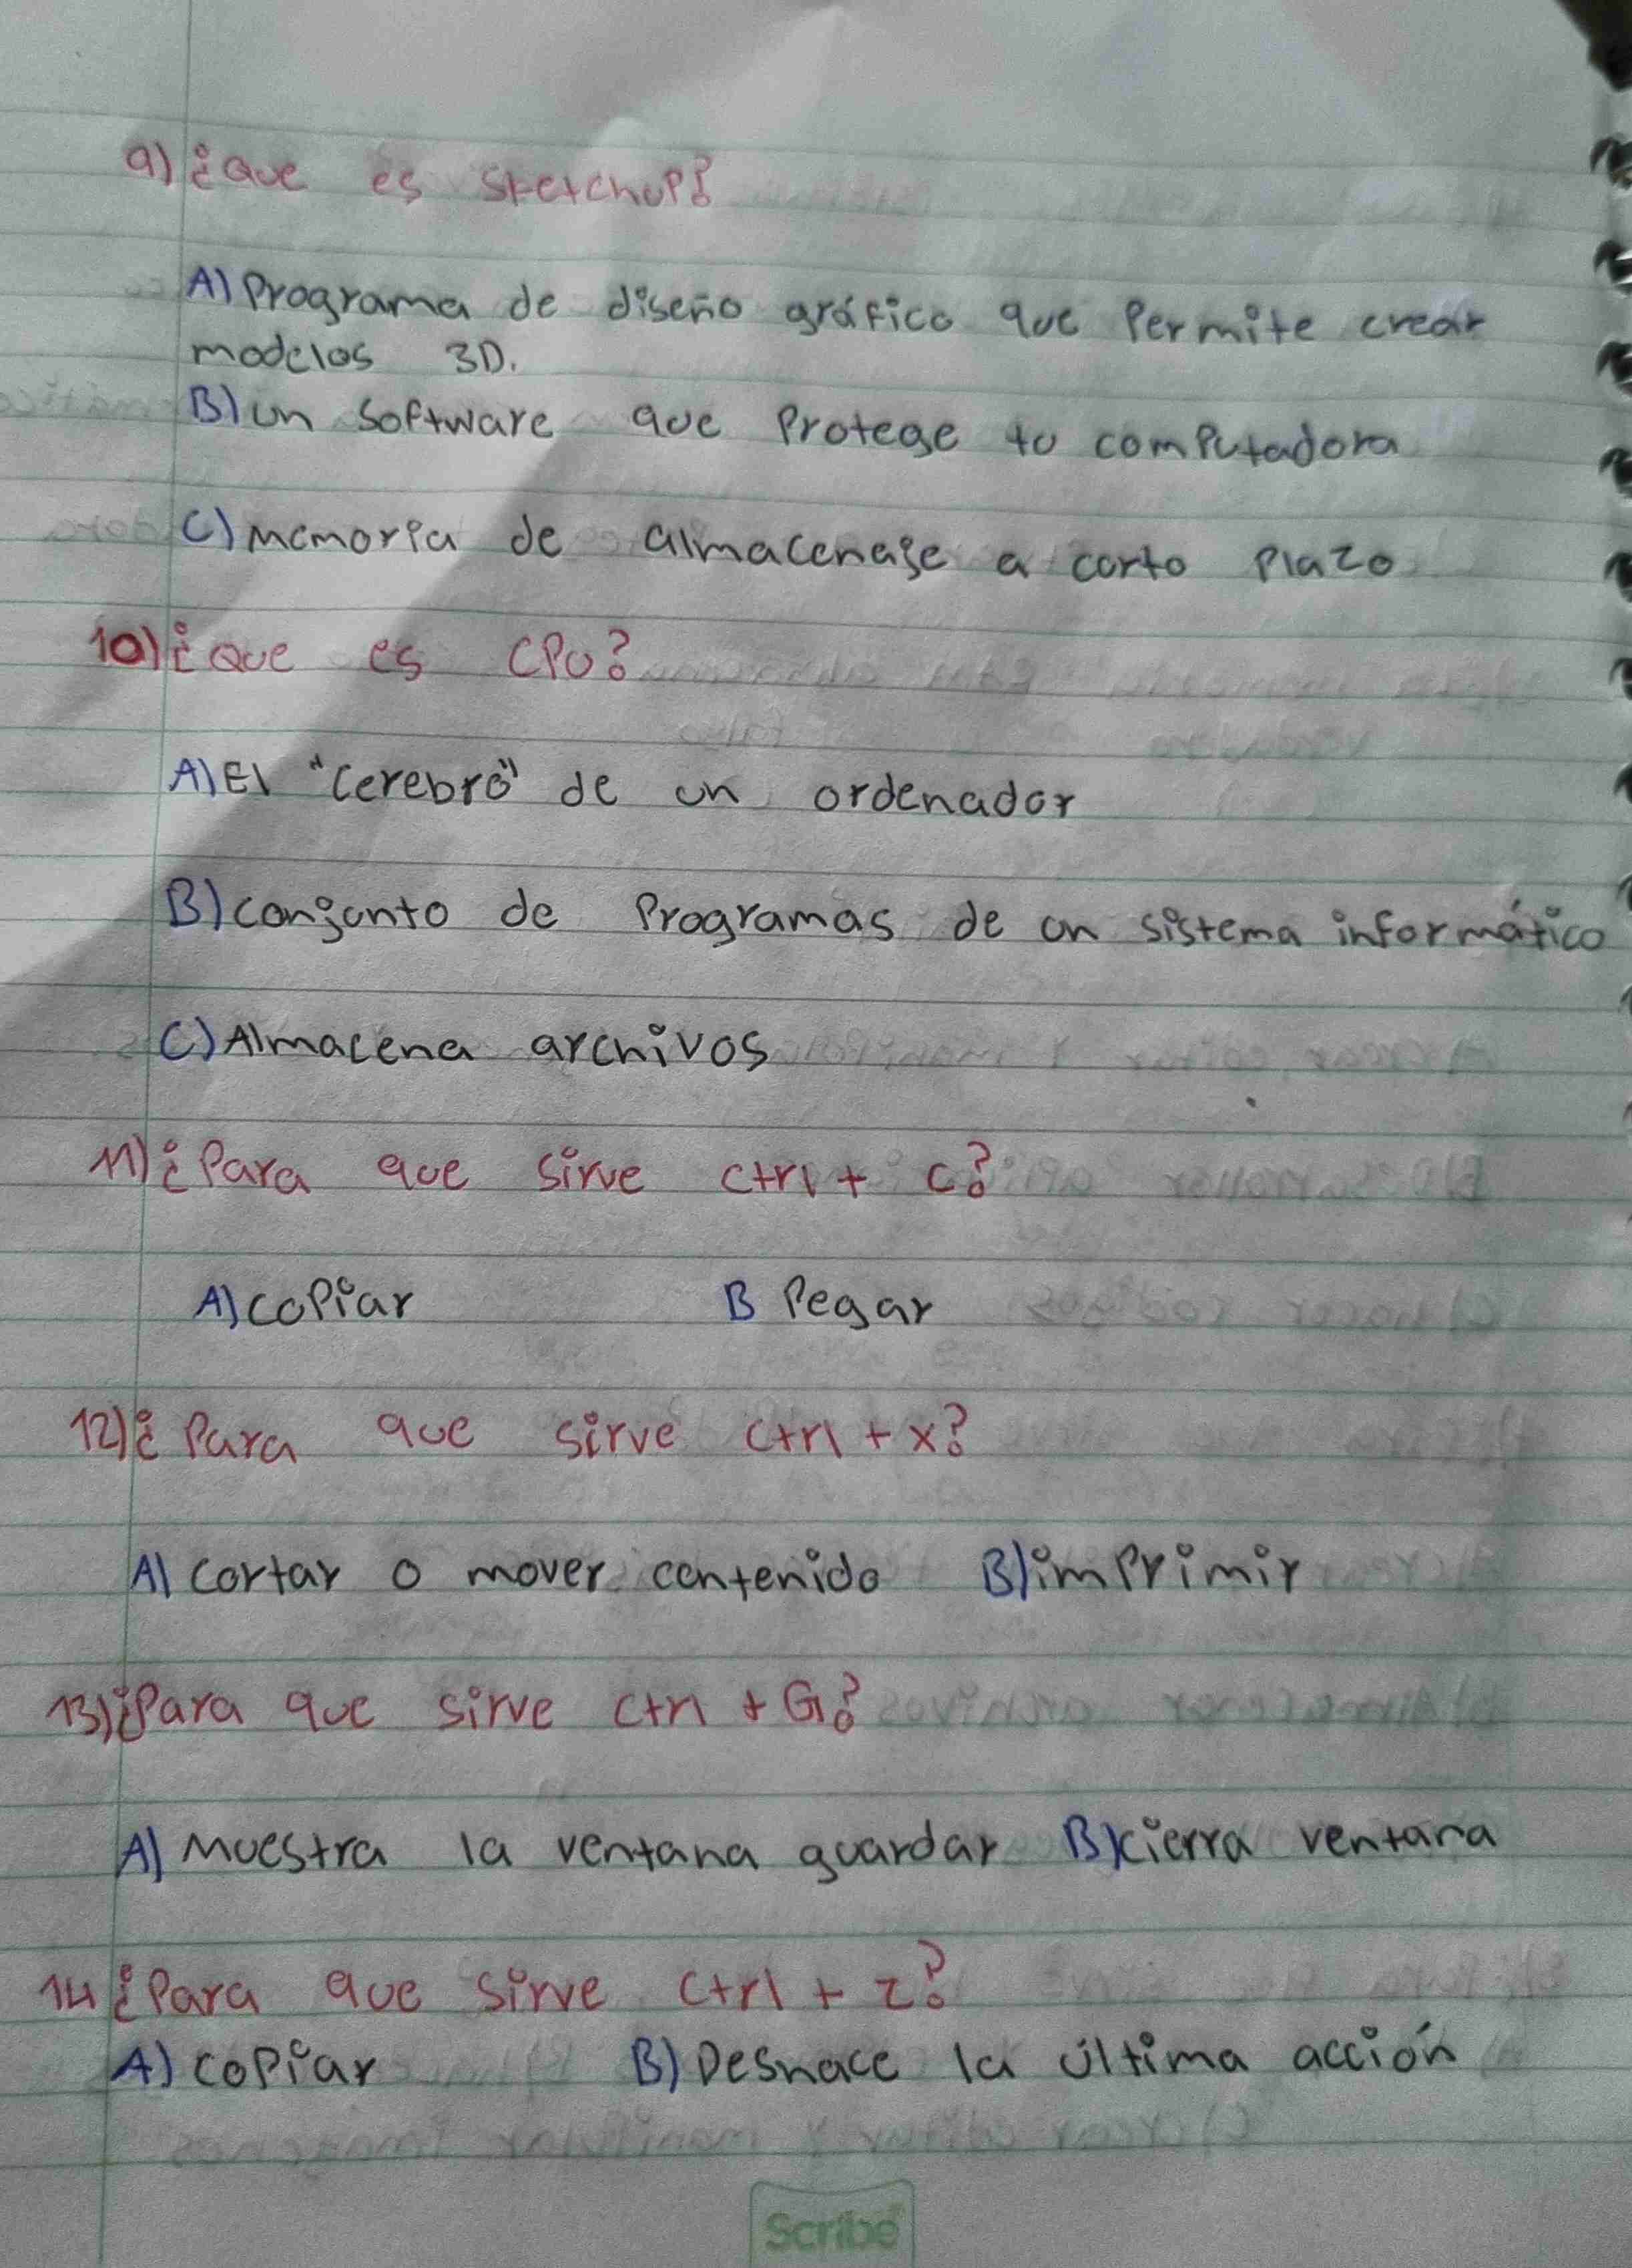 9) ¿Que es sketchup?
A) Programa de diseño gráfico que Permite crear
modelos 3D.
B) un software que Protege tu computadora
C) memoria de almacenaje a corto Plazo
10) ¿Que es CPU?
A) El "cerebro" de un ordenador
B) conjunto de Programas de un sistema informático
C) Almacena archivos
11) ¿Para que sirve ctrl + c?
A) copiar B Pegar
12) ¿Para que sirve ctrl + x?
A) cortar o mover contenido B) imprimir
13) ¿Para que sirve ctrl + G?
A) Muestra la ventana guardar B) cierra ventana
14 ¿Para que sirve ctrl + z?
A) copiar B) Deshace la última acción
Scribe